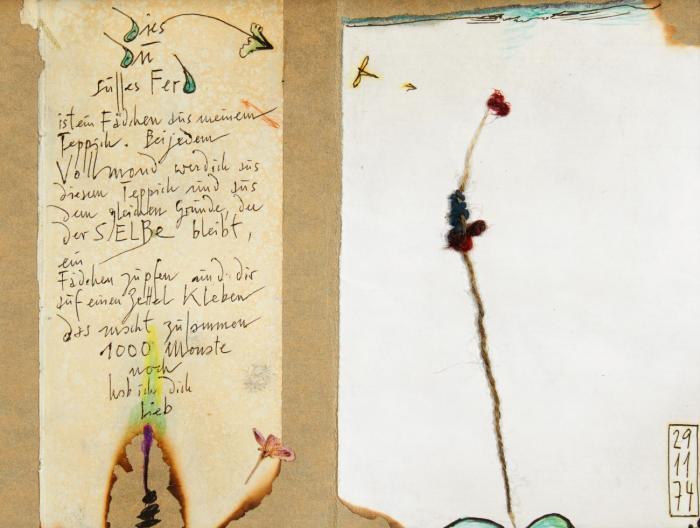 Dies
Du
süsses Ferd
ist ein Fädchen aus meinem
Teppich. Bei jedem
Vollmond werd ich aus
diesem Teppich und aus
dem gleichen Grunde, der
der SELBE bleibt,
ein
Fädchen zupfen und dir
auf einen Zettel Kleben
das macht zusammen
1000 Monate
noch
hab ich dich
lieb
29
11
74